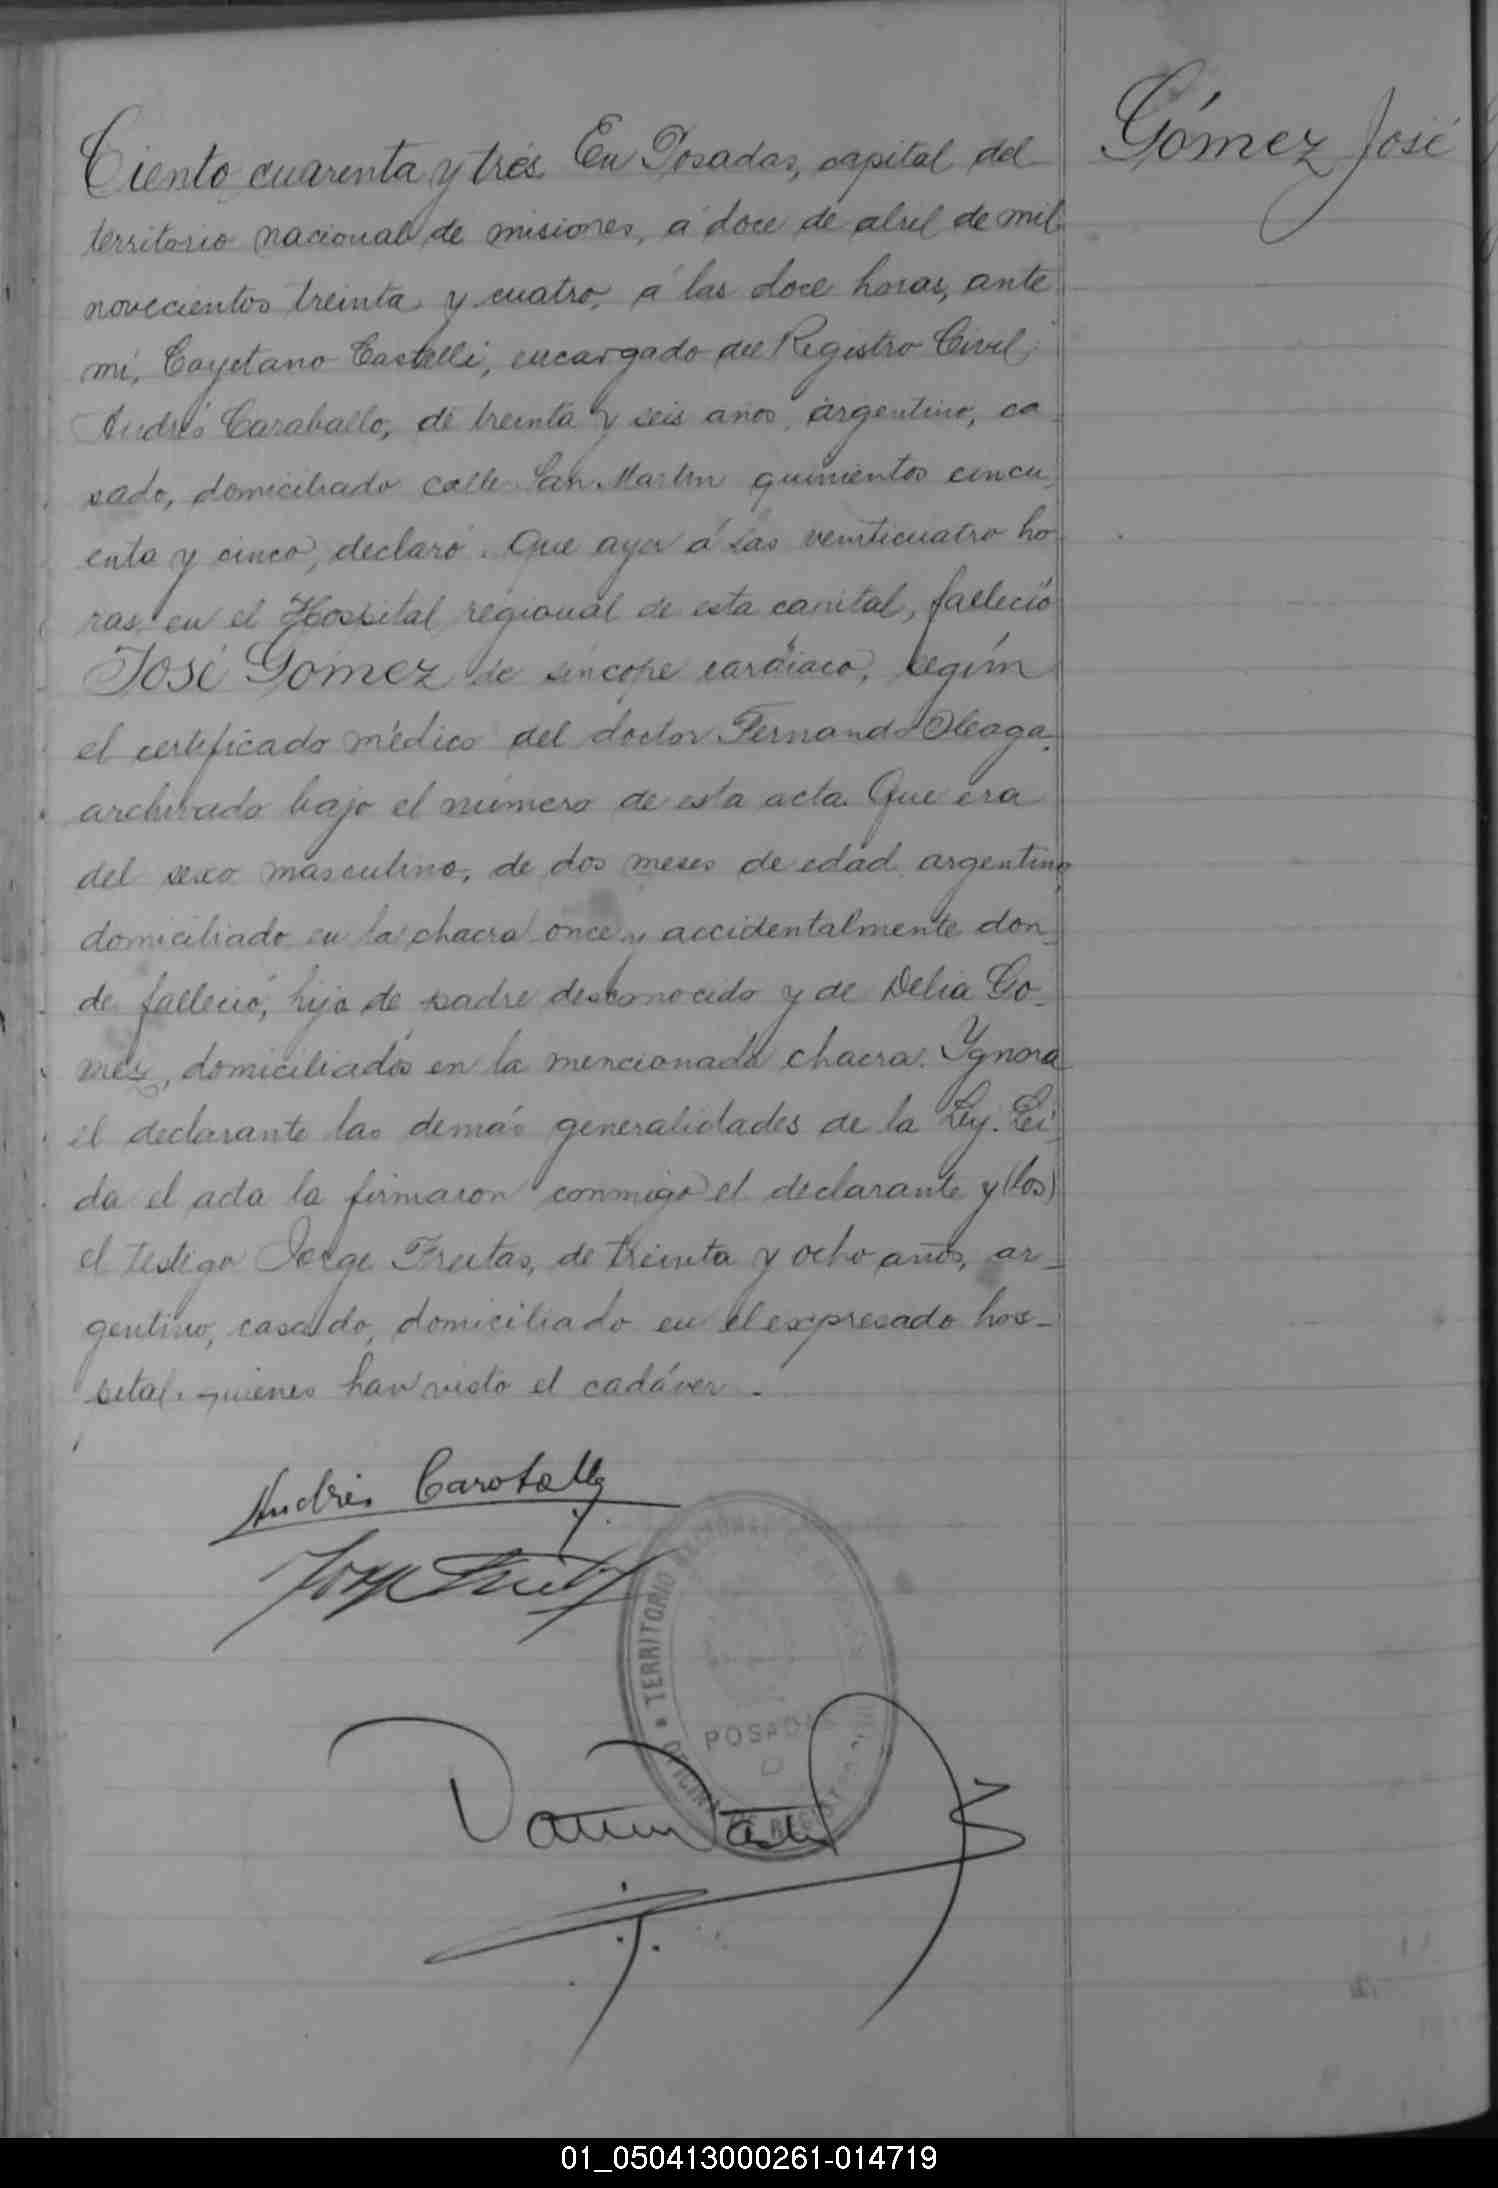 Gómez José
Ciento cuarenta y trés. En Posadas, capital del
territorio nacional de misiones, á doce de abril de mil
novecientos treinta y cuatro, á las doce horas, ante
mí, Cayetano Castelli, encargado del Registro Civil,
Andrés Caraballo, de treinta y seis años, argentino, ca
sado, domiciliado calle San Martin quinientos cincu
enta y cinco, declaró: Que ayer á las veinticuatro ho
ras, en el Hospital regional de esta capital, falleció
José Gómez de síncope cardíaco, según
el certificado médico del doctor Fernando Oleaga,
archivado bajo el número de esta acta. Que era
del sexo masculino, de dos meses de edad, argentino,
domiciliado en la chacra once y accidentalmente don-
de falleció, hijo de padre desconocido y de Delia Go-
mez, domiciliados en la mencionada chacra. Ygnora
el declarante las demás generalidades de la Ley. Lei-
da el acta la firmaron conmigo el declarante y (los)
el testigo Jorge Freitas, de treinta y ocho años, ar-
gentino, casado, domiciliado en el expresado hos-
pital, quienes han visto el cadáver.-
Andrés Caraballo
TERRITORIO NACIONAL
POSADAS
OFICINA DE REGISTRO
01_050413000261-014719